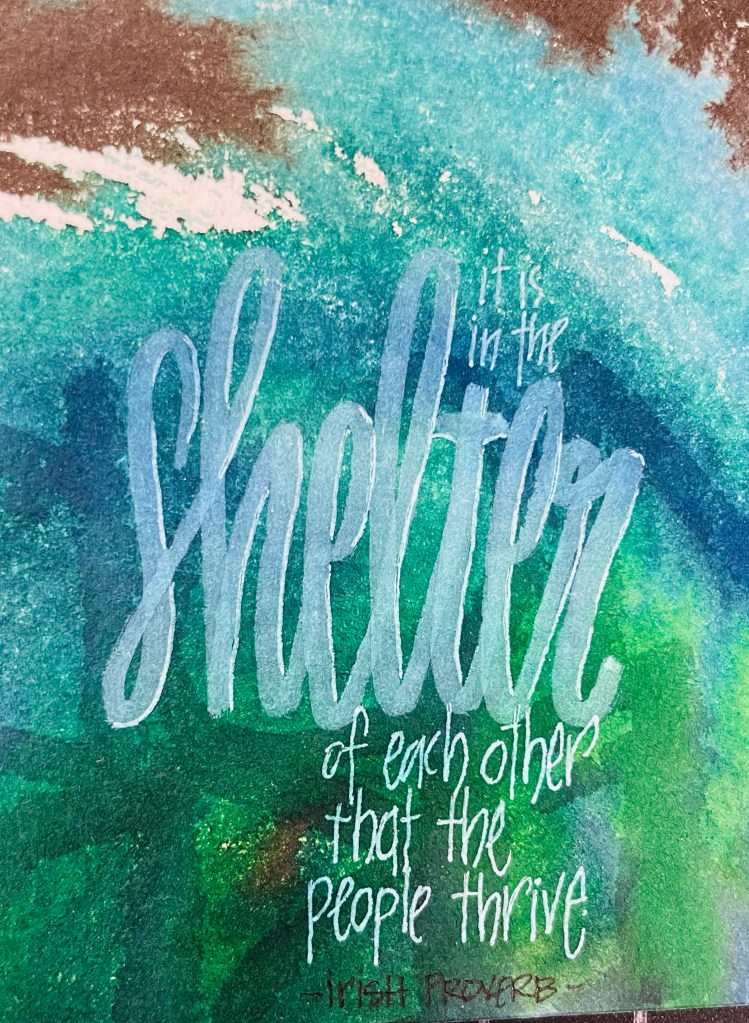 it is
in the
shelter
of each other
that the
people thrive.
- iRiSH PROVERB -